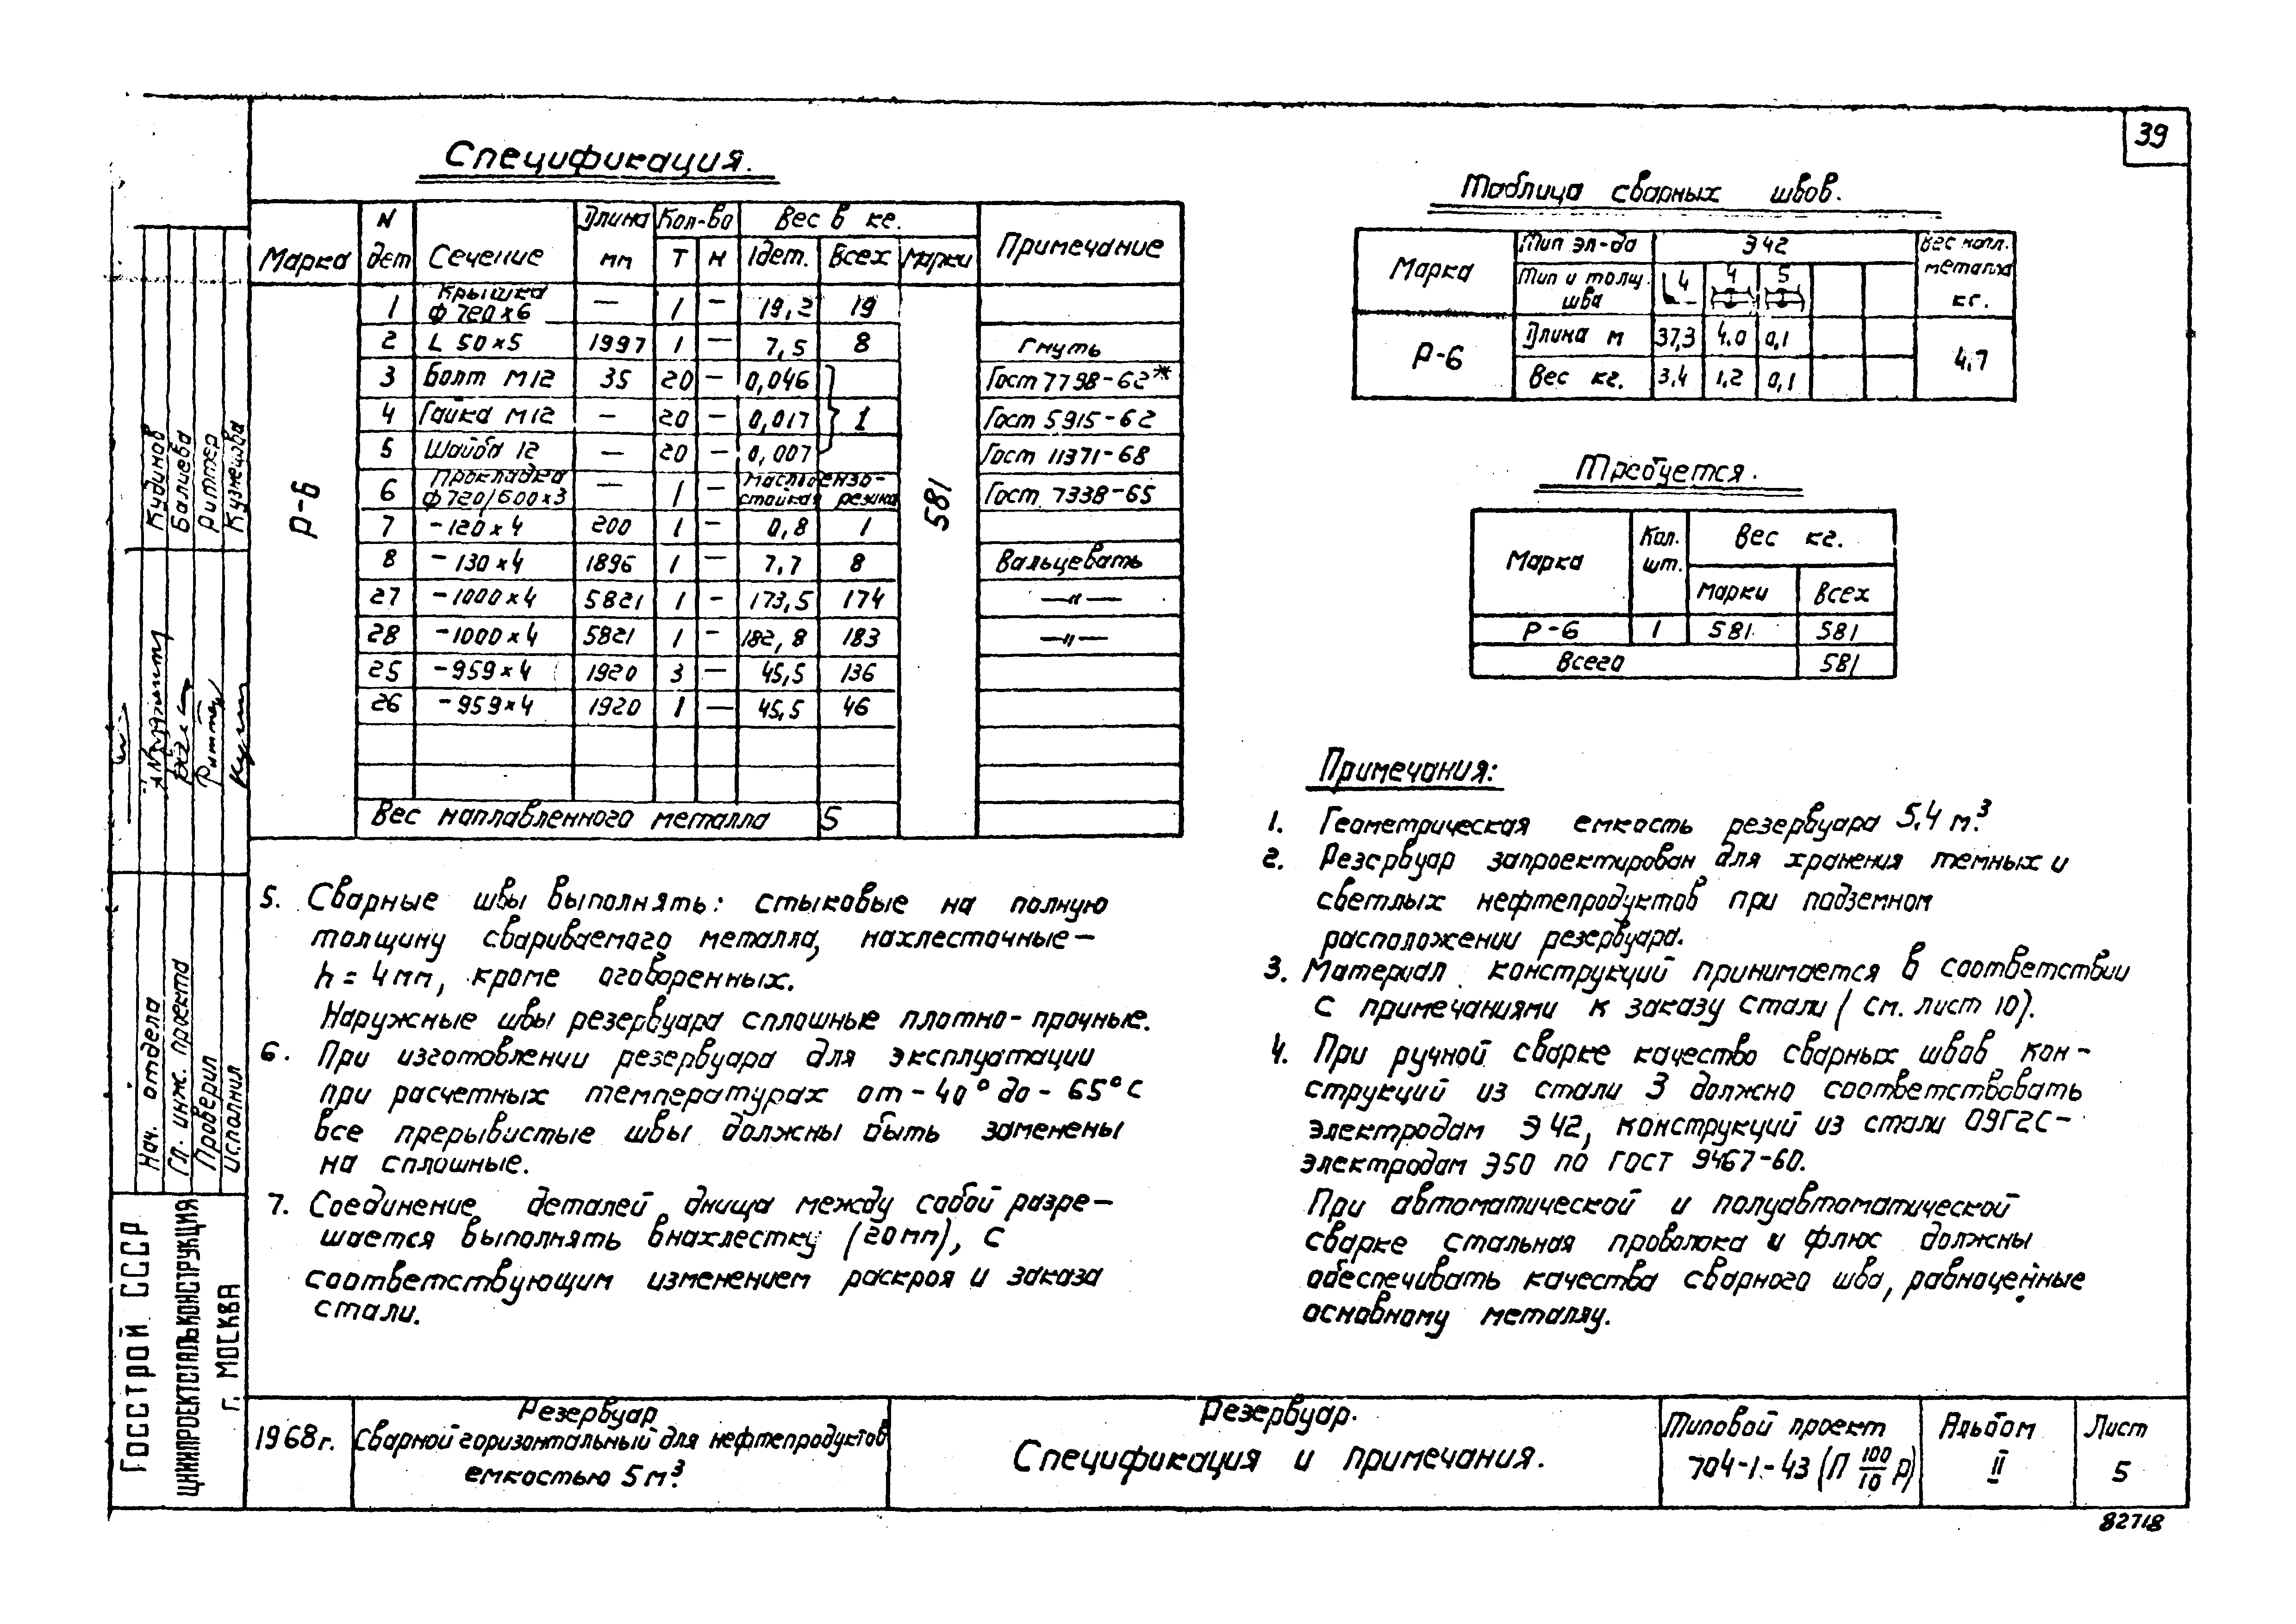 39
Спецификация.
Марка N дет Сечение Длина мм Кол-во Вес в кг. Примечание
Т Н 1дет. Всех Марки
Р-6 581
1 Крышка ф720х6 — 1 — 19,2 19
2 L 50х5 1997 1 — 7,5 8 Гнуть
3 Болт М12 35 20 — 0,046 Гост 7798-62*
4 Гайка М12 — 20 — 0,017 1 Гост 5915-62
5 Шайба 12 — 20 — 0,007 Гост 11371-68
6 Прокладка ф720/600х3 — 1 — Маслобензо-стойкая резина Гост 7338-65
7 -120х4 200 1 — 0,8 1
8 -130х4 1896 1 — 7,7 8 Вальцевать
27 -1000х4 5821 1 - 173,5 174 —"—
28 -1000х4 5821 1 - 182,8 183 —"—
25 -959х4 1920 3 — 45,5 136
26 -959х4 1920 1 — 45,5 46
Вес наплавленного металла 5
Таблица сварных швов.
Марка Тип эл-да Э42 Вес напл. металла кг.
Тип и толщ. шва 4 4 5
Р-6 Длина м 37,3 4.0 0,1 4,7
Вес кг. 3,4 1,2 0,1
Требуется.
Марка Кол. шт. Вес кг.
марки Всех
Р-6 1 581 581
Всего 581
Примечания:
1. Геометрическая емкость резервуара 5,4 м.³
2. Резервуар запроектирован для хранения темных и
светлых нефтепродуктов при подземном
расположении резервуара.
3. Материал конструкций принимается в соответствии
с примечаниями к заказу стали (см. лист 10).
4. При ручной сварке качество сварных швов кон-
струкций из стали 3 должно соответствовать
электродам Э42, конструкций из стали 09Г2С-
электродам Э50 по ГОСТ 9467-60.
При автоматической и полуавтоматической
сварке стальная проволока и флюс должны
обеспечивать качества сварного шва, равноценные
основному металлу.
5. Сварные швы выполнять: стыковые на полную
толщину свариваемого металла, нахлесточные—
h = 4мм, кроме оговоренных.
Наружные швы резервуара сплошные плотно-прочные.
6. При изготовлении резервуара для эксплуатации
при расчетных температурах от -40° до -65°С
все прерывистые швы должны быть заменены
на сплошные.
7. Соединение деталей днища между собой разре-
шается выполнять внахлестку (20мм), с
соответствующим изменением раскроя и заказа
стали.
Нач. отдела Кудинов
Гл. инж. проекта Валиева
Проверил Риттер
Исполнил Кузнецова
Госстрой СССР
ЦНИИПРОЕКТСТАЛЬКОНСТРУКЦИЯ
г. МОСКВА
1968г.
Резервуар
Сварной горизонтальный для нефтепродуктов
емкостью 5м.³
Резервуар.
Спецификация и примечания.
Типовой проект
704-1-43 (П 100/10 Р)
Альбом
II
Лист
5
82718